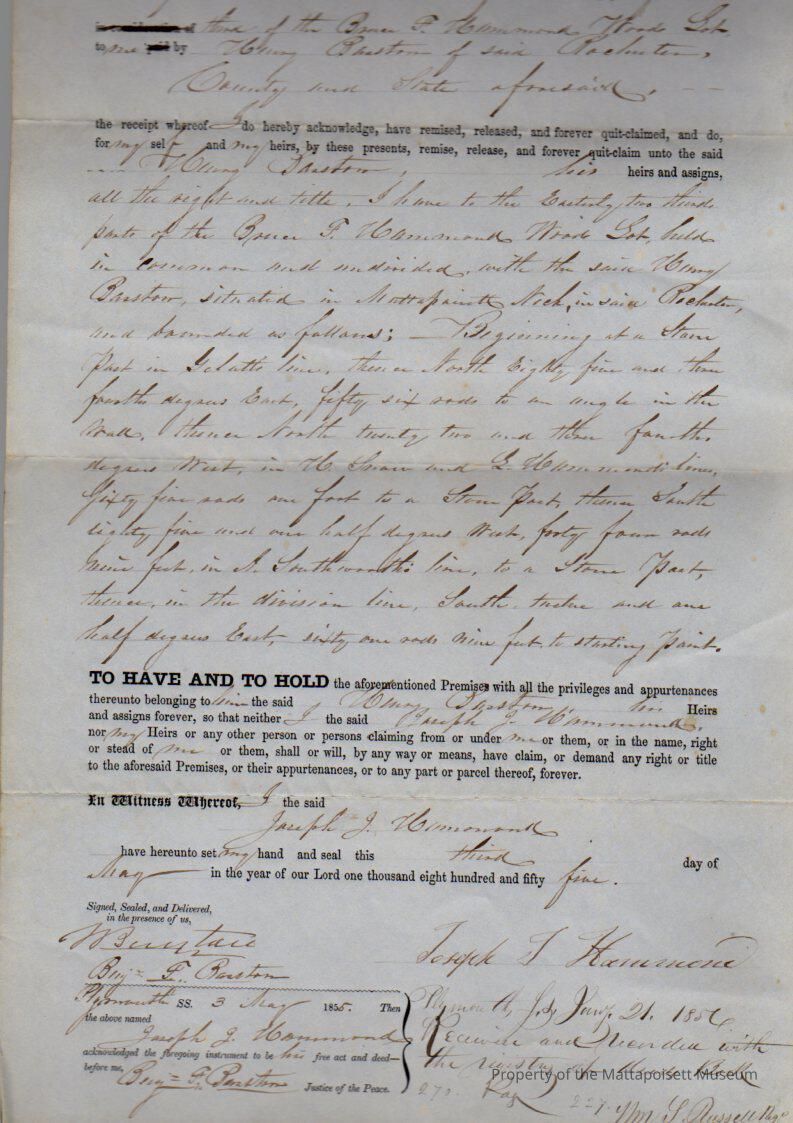 third of the Bruce F. Hammond Wood Lot
to me by Henry Barstow of said Rochester,
County and State aforesaid,
the receipt whereof I do hereby acknowledge, have remised, released, and forever quit-claimed, and do,
for my self and my heirs, by these presents, remise, release, and forever quit-claim unto the said
Henry Barstow, his heirs and assigns,
all the right and title, I have to the Easterly two third
parts of the Bruce F. Hammond Wood Lot, held
in common and undivided, with the said Henry
Barstow, situated in Mattapoisett Neck, in said Rochester,
and bounded as follows; — Beginning at a Stone
Post in line, thence North Eighty five and three
fourths degrees East, fifty six rods to an angle in the
Wall, thence North twenty two and three fourths
degrees West, in H. and L. Hammonds line,
Sixty five rods one foot to a Stone Post, thence South
eighty five and one half degrees West, forty four rods
nine feet, in Southworth's line, to a Stone Post,
thence, in the division line, South twelve and one
half degrees East, sixty one rods nine feet to starting Point.
TO HAVE AND TO HOLD the aforementioned Premises with all the privileges and appurtenances
thereunto belonging to him the said Henry Barstow his Heirs
and assigns forever, so that neither I the said Joseph J. Hammond,
nor my Heirs or any other person or persons claiming from or under me or them, or in the name, right
or stead of me or them, shall or will, by any way or means, have claim, or demand any right or title
to the aforesaid Premises, or their appurtenances, or to any part or parcel thereof, forever.
In Witness Whereof, I the said
Joseph J. Hammond
have hereunto set my hand and seal this third day of
May in the year of our Lord one thousand eight hundred and fifty five.
Signed, Sealed, and Delivered,
in the presence of us,
Benj. F. Barstow
Joseph J Hammond
Plymouth SS. 3 May 1855. Then
the above named
Joseph J. Hammond
acknowledged the foregoing instrument to be his free act and deed—
before me,
Benj. F. Barstow Justice of the Peace.
Plymouth, ss, Jany. 21. 1856
Received and recorded with
the registry of deeds Book
270 Page 227.
Wm S. Russell Regr
Property of the Mattapoisett Museum